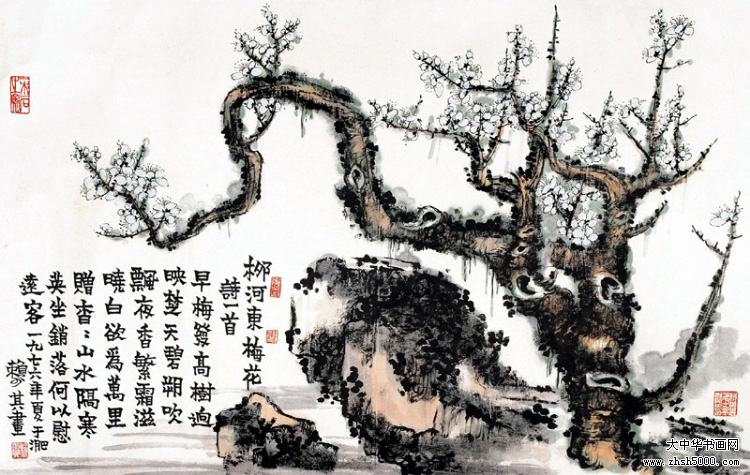 柳河東梅花
詩一首
早梅發高樹迥
映楚天碧朔吹
飄夜香繁霜滋
曉白欲爲萬里
贈杳:山水隔寒
英坐銷落何以慰
遠客 一九七六年夏于
賴少其畫
大中华书画网
www.zhsh5000.com